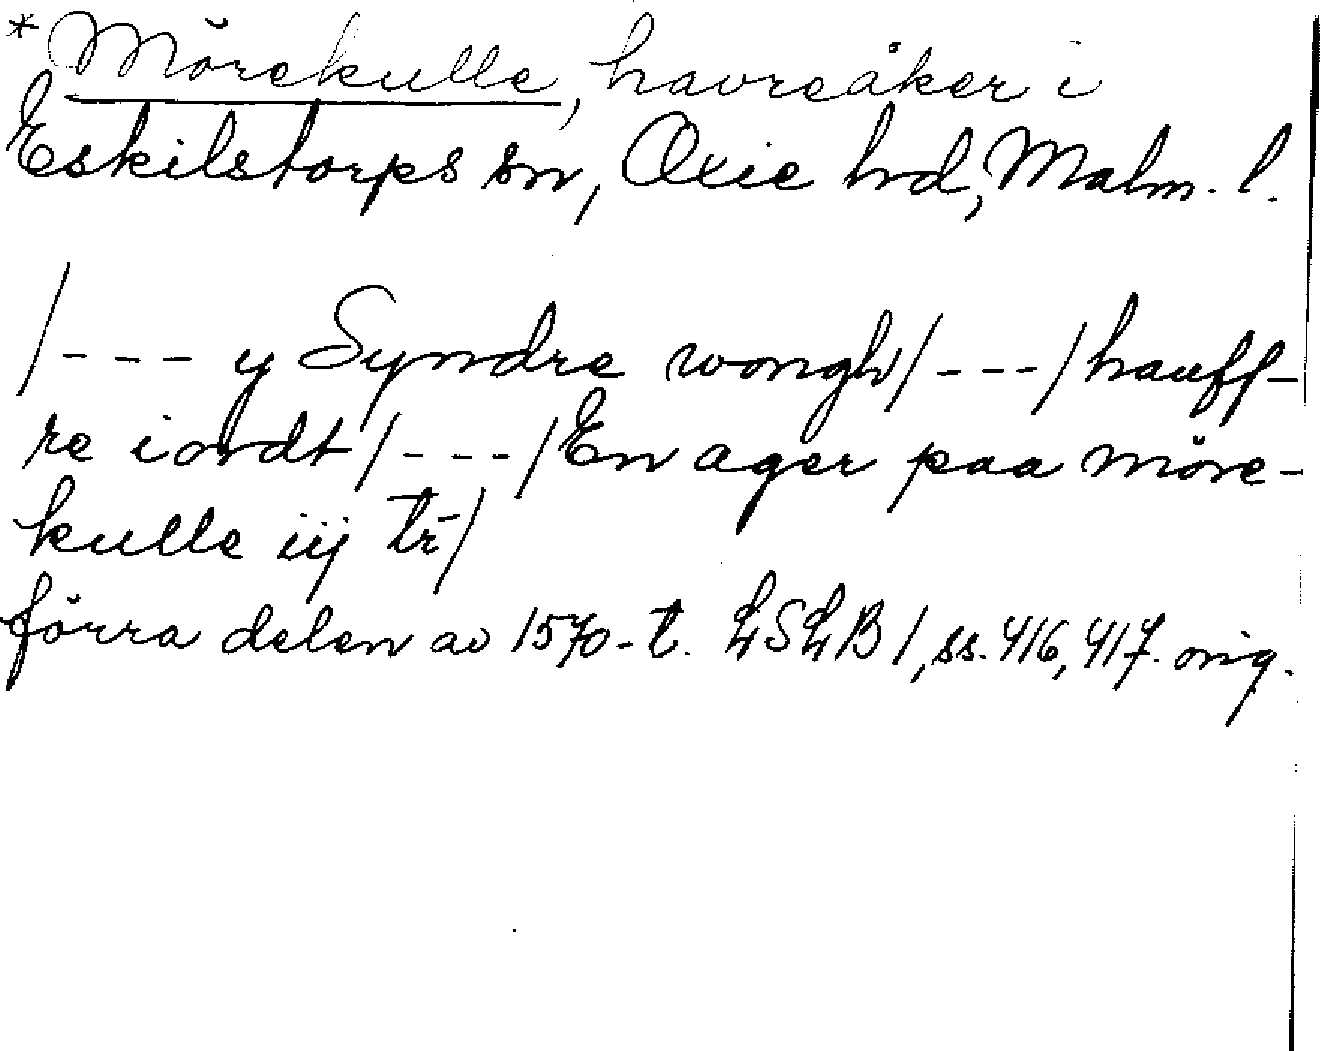 * Mörekulle, havreåker i
Eskilstorps sn, Oxie hrd, Malm. l.
/--- y Syndre wongh/---/hauff-
re iordt/---/En ager paa möre-
kulle iij tr̄/
förra delen av 1570-t. LSLB 1, ss. 416, 417. orig.